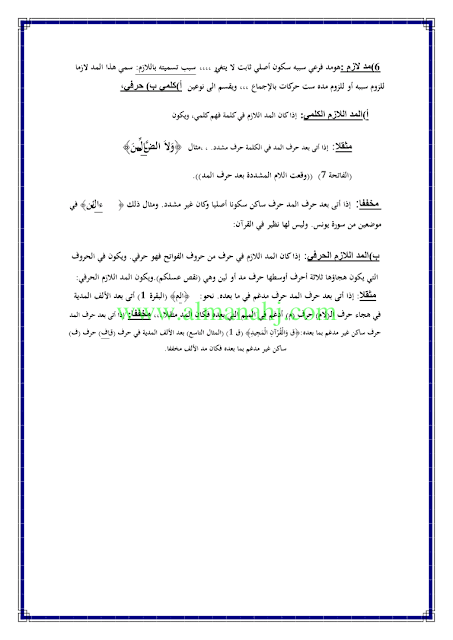 6)مد لازم :هو مد فرعي سببه سكون أصلي ثابت لا يتغير ،،،، سبب تسميته باللازم: سمي هذا المد لازما
للزوم سببه أو للزوم مده ست حركات بالإجماع ،،، ويقسم الى نوعين أ)كلمي ب) حرفي،
أ)المد اللازم الكلمي: إذا كان المد اللازم في كلمة فهو كلمي، ويكون
مثقلا: إذا أتى بعد حرف المد في الكلمة حرف مشدد. ، .مثال ﴿وَلاَ الضَّالِّينَ﴾
(الفاتحة 7) ((وقعت اللام المشددة بعد حرف المد)).
مخففا: إذا أتى بعد حرف المد حرف ساكن سكونا أصليا وكان غير مشدد. ومثال ذلك ﴿ ﴾ في
موضعين من سورة يونس. وليس لها نظير في القرآن:
ب)المد اللازم الحرفي: إذا كان المد اللازم في حرف من حروف الفواتح فهو حرفي. ويكون في الحروف
التي يكون هجاؤها ثلاثة أحرف أوسطها حرف مد أو لين وهي (نقص عسلكم).ويكون المد اللازم الحرفي:
مثقلا: إذا أتى بعد حرف المد حرف مدغم في ما بعده. نحو: ﴿الم﴾ (البقرة 1) أتى بعد الألف المدية
في هجاء حرف (لام) حرف (م) أدغم في الميم التي بعده فكان المد مثقلا.. مخففا: إذا أتى بعد حرف المد
حرف ساكن غير مدغم بما بعده:﴿ق وَالْقُرْآنِ الْمَجِيدِ﴾ (ق 1) (المثال التاسع) بعد الألف المدية في حرف (قاف) حرف (ف)
ساكن غير مدغم بما بعده فكان مد الألف مخففا.
www.almanahj.com